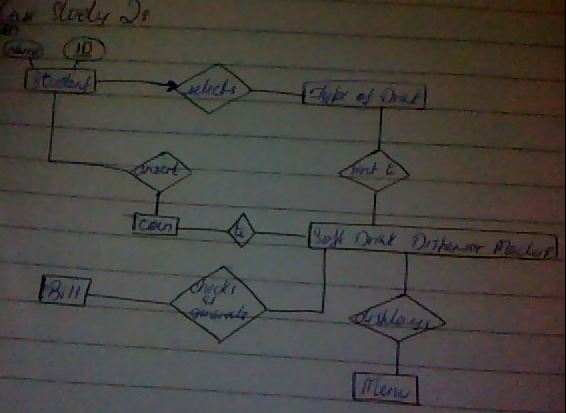 Case Study 2:
Name ID
Student selects Type of Drink
insert sent to
Coin to Soft Drink Dispenser Machine
Bill checks & generate displays
Menu